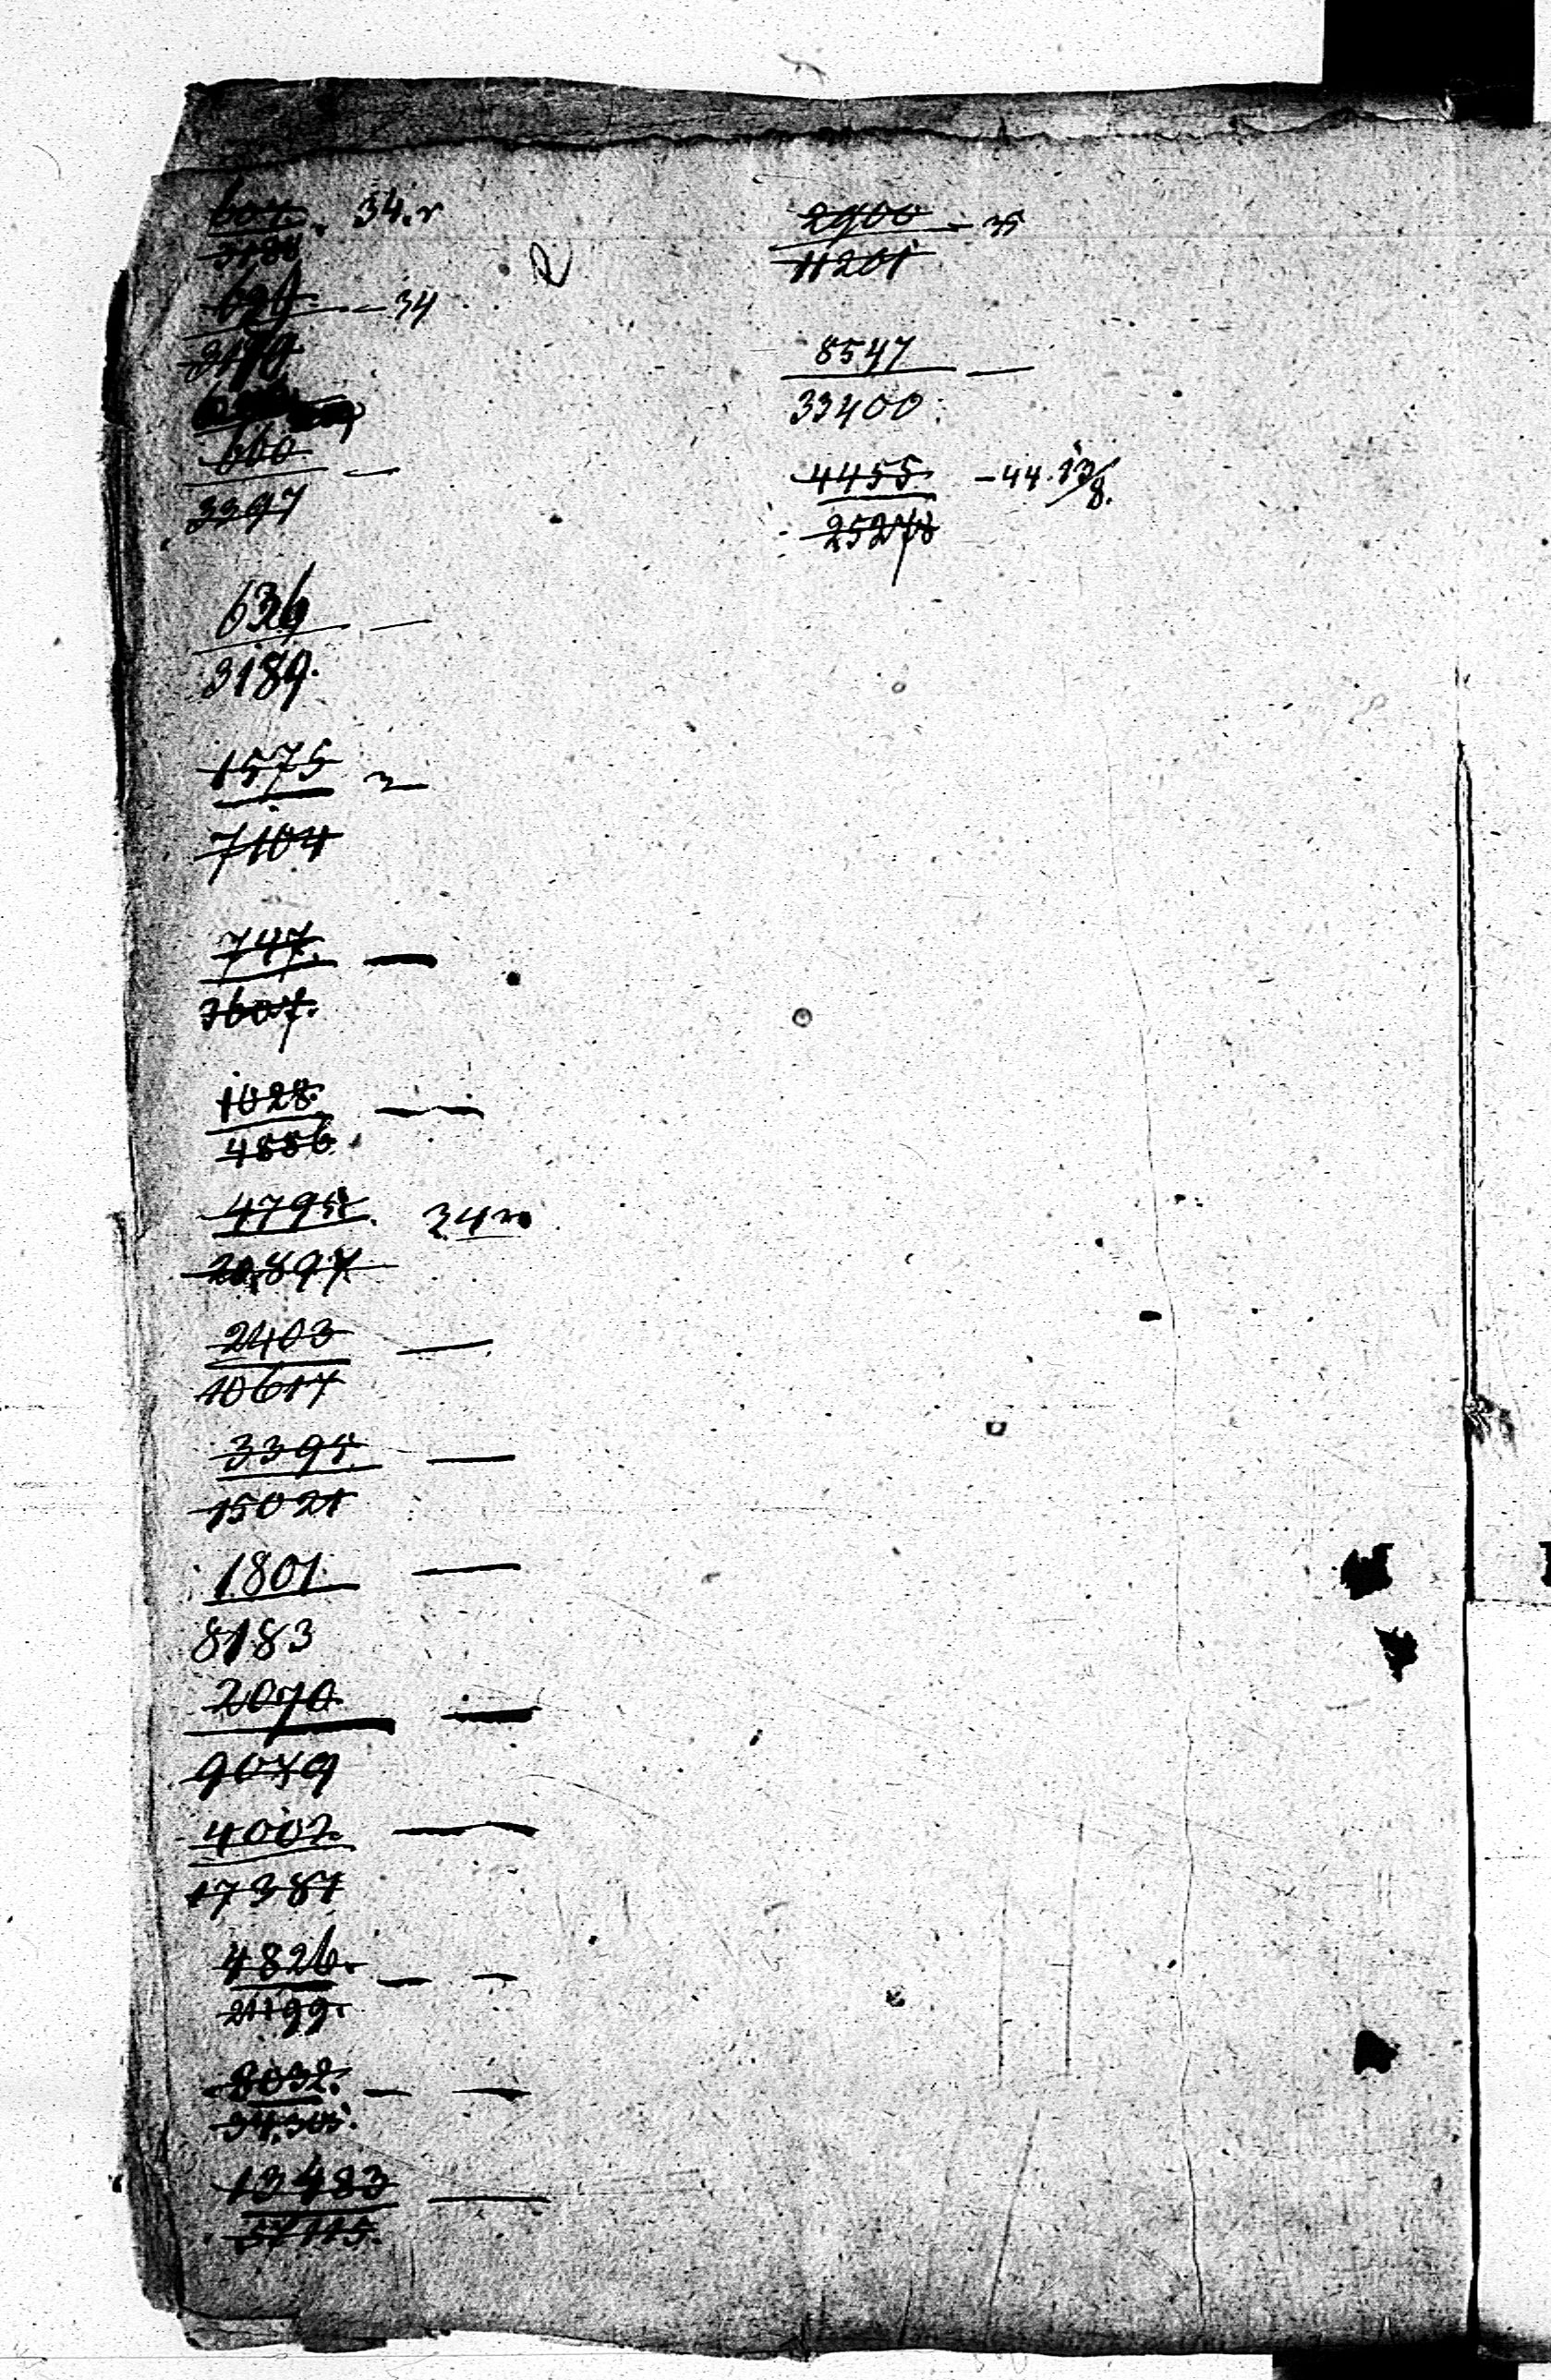 607. 34.
3180
629. — 34
3179
660 —
3397
636 —
3189.
1575
7104
747. —
3607.
1028. —
4886.
4795. 34
20,897
2403 —
10617
3395. —
15021
1801. —
8183
2070 —
9079
4002. —
17381
4826. — —
21199.
8032. — —
34,305.
13483 —
57115.
2900 — 35
11201
8547 —
33400
4455 — 44. 13/8.
25278